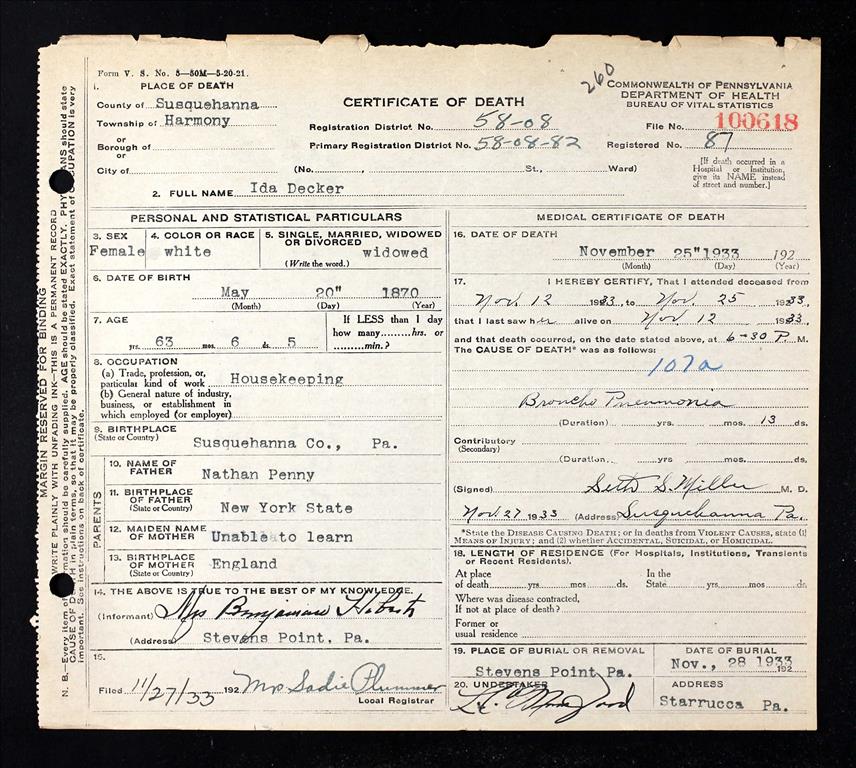 Form V. S. No. 5—50M—5-20-21.
260
1. PLACE OF DEATH
County of Susquehanna
Township of Harmony
or
Borough of
or
City of
CERTIFICATE OF DEATH
Registration District No. 58-08
Primary Registration District No. 58-08-82
(No. , St., Ward)
COMMONWEALTH OF PENNSYLVANIA
DEPARTMENT OF HEALTH
BUREAU OF VITAL STATISTICS
File No. 100618
Registered No. 87
[If death occurred in a
Hospital or Institution,
give its NAME instead
of street and number.]
2. FULL NAME Ida Decker
PERSONAL AND STATISTICAL PARTICULARS
3. SEX
Female
4. COLOR OR RACE
white
5. SINGLE, MARRIED, WIDOWED
OR DIVORCED
widowed
(Write the word.)
6. DATE OF BIRTH
May 20" 1870
(Month) (Day) (Year)
7. AGE
63 yrs. 6 mos. 5 ds.
If LESS than 1 day
how many hrs. or
min.?
8. OCCUPATION
(a) Trade, profession, or,
particular kind of work Housekeeping
(b) General nature of industry,
business, or establishment in
which employed (or employer)
9. BIRTHPLACE
(State or Country)
Susquehanna Co., Pa.
PARENTS
10. NAME OF
FATHER
Nathan Penny
11. BIRTHPLACE
OF FATHER
(State or Country)
New York State
12. MAIDEN NAME
OF MOTHER
Unable to learn
13. BIRTHPLACE
OF MOTHER
(State or Country)
England
14. THE ABOVE IS TRUE TO THE BEST OF MY KNOWLEDGE.
(Informant) Mrs Benjamin
(Address) Stevens Point, Pa.
15.
Filed 11/27/33 192 Mrs Sadie Plummer
Local Registrar
MEDICAL CERTIFICATE OF DEATH
16. DATE OF DEATH
November 25" 1933 192
(Month) (Day) (Year)
17. I HEREBY CERTIFY, That I attended deceased from
Nov. 12 1933, to Nov. 25 1933,
that I last saw her alive on Nov 12 1933,
and that death occurred, on the date stated above, at 6-30 P. M.
The CAUSE OF DEATH* was as follows:
107a
Broncho Pneumonia
(Duration) yrs. mos. 13 ds.
Contributory
(Secondary)
(Duration) yrs. mos. ds.
(Signed) Seth S. Miller M. D.
Nov. 27 1933 (Address) Susquehanna Pa.
*State the DISEASE CAUSING DEATH; or in deaths from VIOLENT CAUSES, state (1)
MEANS OF INJURY; and (2) whether ACCIDENTAL, SUICIDAL, or HOMICIDAL.
18. LENGTH OF RESIDENCE (For Hospitals, Institutions, Transients
or Recent Residents).
At place
of death yrs. mos. ds.
In the
State yrs. mos. ds.
Where was disease contracted,
If not at place of death?
Former or
usual residence
19. PLACE OF BURIAL OR REMOVAL
Stevens Point, Pa.
DATE OF BURIAL
Nov., 28 1933 192
20. UNDERTAKER
ADDRESS
Starrucca Pa.
MARGIN RESERVED FOR BINDING
WRITE PLAINLY WITH UNFADING INK—THIS IS A PERMANENT RECORD
N. B.—Every item of information should be carefully supplied. AGE should be stated EXACTLY. PHYSICIANS should state
CAUSE OF DEATH in plain terms, so that it may be properly classified. Exact statement of OCCUPATION is very
important. See instructions on back of certificate.